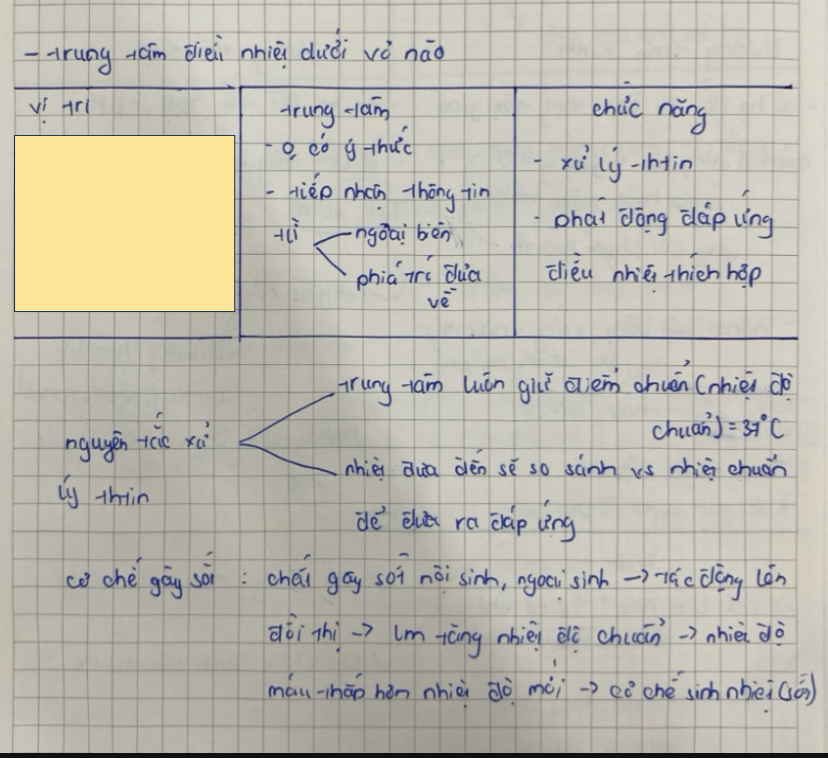 - trung tâm điều nhiệt dưới vỏ não
vị trí
trung tâm
- ọ có ý thức
- tiếp nhận thông tin
từ
ngoại biên
phía trc đưa
về
chức năng
- xử lý thtin
- phát động đáp ứng
điều nhiệt thích hợp
nguyên tắc xử
lý thtin
trung tâm luôn giữ điểm chuẩn (nhiệt độ
chuẩn) = 37°C
nhiệt đưa đến sẽ so sánh vs nhiệt chuẩn
để đưa ra đáp ứng
cơ chế gây sốt : chất gây sốt nội sinh, ngoại sinh → tác động lên
đồi thị → lm tăng nhiệt độ chuẩn → nhiệt độ
máu thấp hơn nhiệt độ mới → cơ chế sinh nhiệt (sốt)